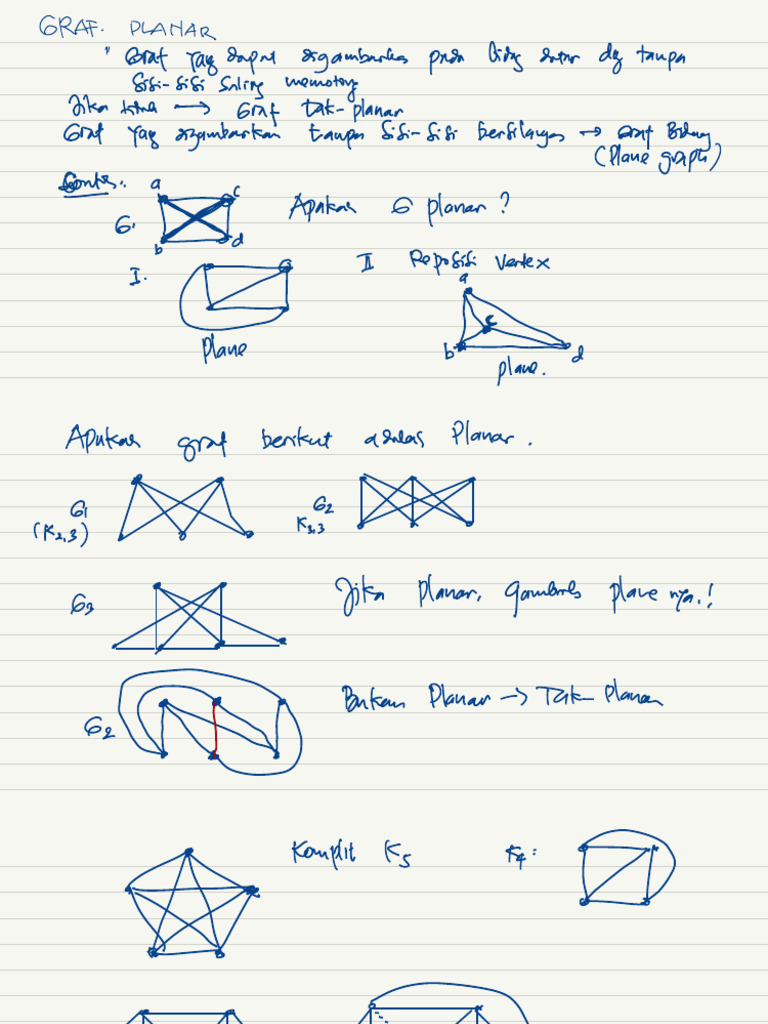 GRAF. PLANAR
" Graf yag dapat digambarkan pada bidang datar dg tanpa
sisi-sisi saling memotong
Jika tidak → Graf tak-planar
Graf yag digambarkan tanpa sisi-sisi bersilangan → Graf Bidang
(Plane graph)
Contoh:
a c
G1
b d
Apakah G planar ?
I.
Plane
II Reposisi vertex
a
c
b d
plane.
Apakah graf berikut adalah Planar.
G1
(K2,3)
G2
K3,3
G3
Jika planar, gambarlah plane nya.!
G2
Bukan Planar → Tak-Planar
Komplit K5
K4: